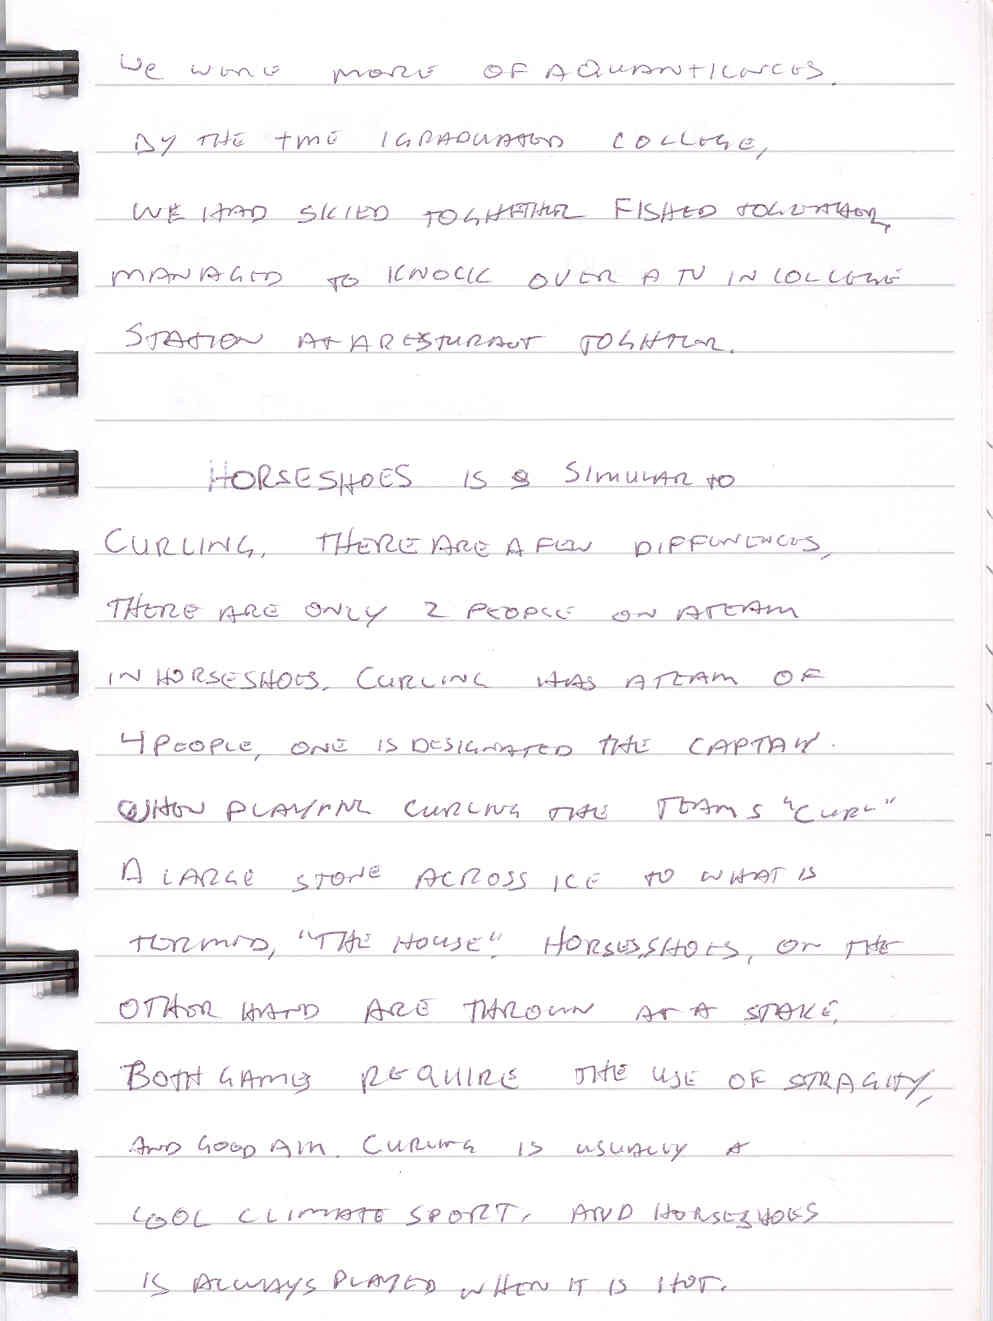 We were more of aquanticnces.
By the tme I graduated college,
we had skied toghether fished together,
managed to knock over a TV in college
station at a resturaut toghter.
Horseshoes is a simular to
curling. There are a few diffurences,
there are only 2 people on a team
in horseshoes. Curling has a team of
4 people, one is designated the captain.
When playing curling the teams "curl"
a large stone across ice to what is
termed, "the house". Horsesshoes, on the
other hand are thrown at a stake.
Both games require the use of stragity,
and good aim. Curling is usually a
cool climate sport, and horseshoes
is always played when it is hot.